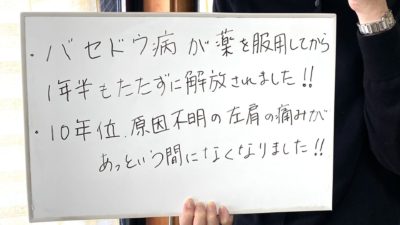 ・バセドウ病が薬を服用してから
1年半もたたずに解放されました!!
・10年位、原因不明の左肩の痛みが
あっという間になくなりました!!